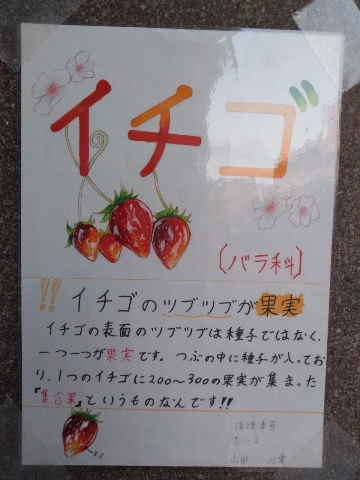 イチゴ
(バラ科)
!! イチゴのツブツブが果実
イチゴの表面のツブツブは種子ではなく、
一つ一つが果実です。つぶの中に種子が入ってお
り、1つのイチゴに200〜300の果実が集まった
『集合果』というものなんです!!
山田